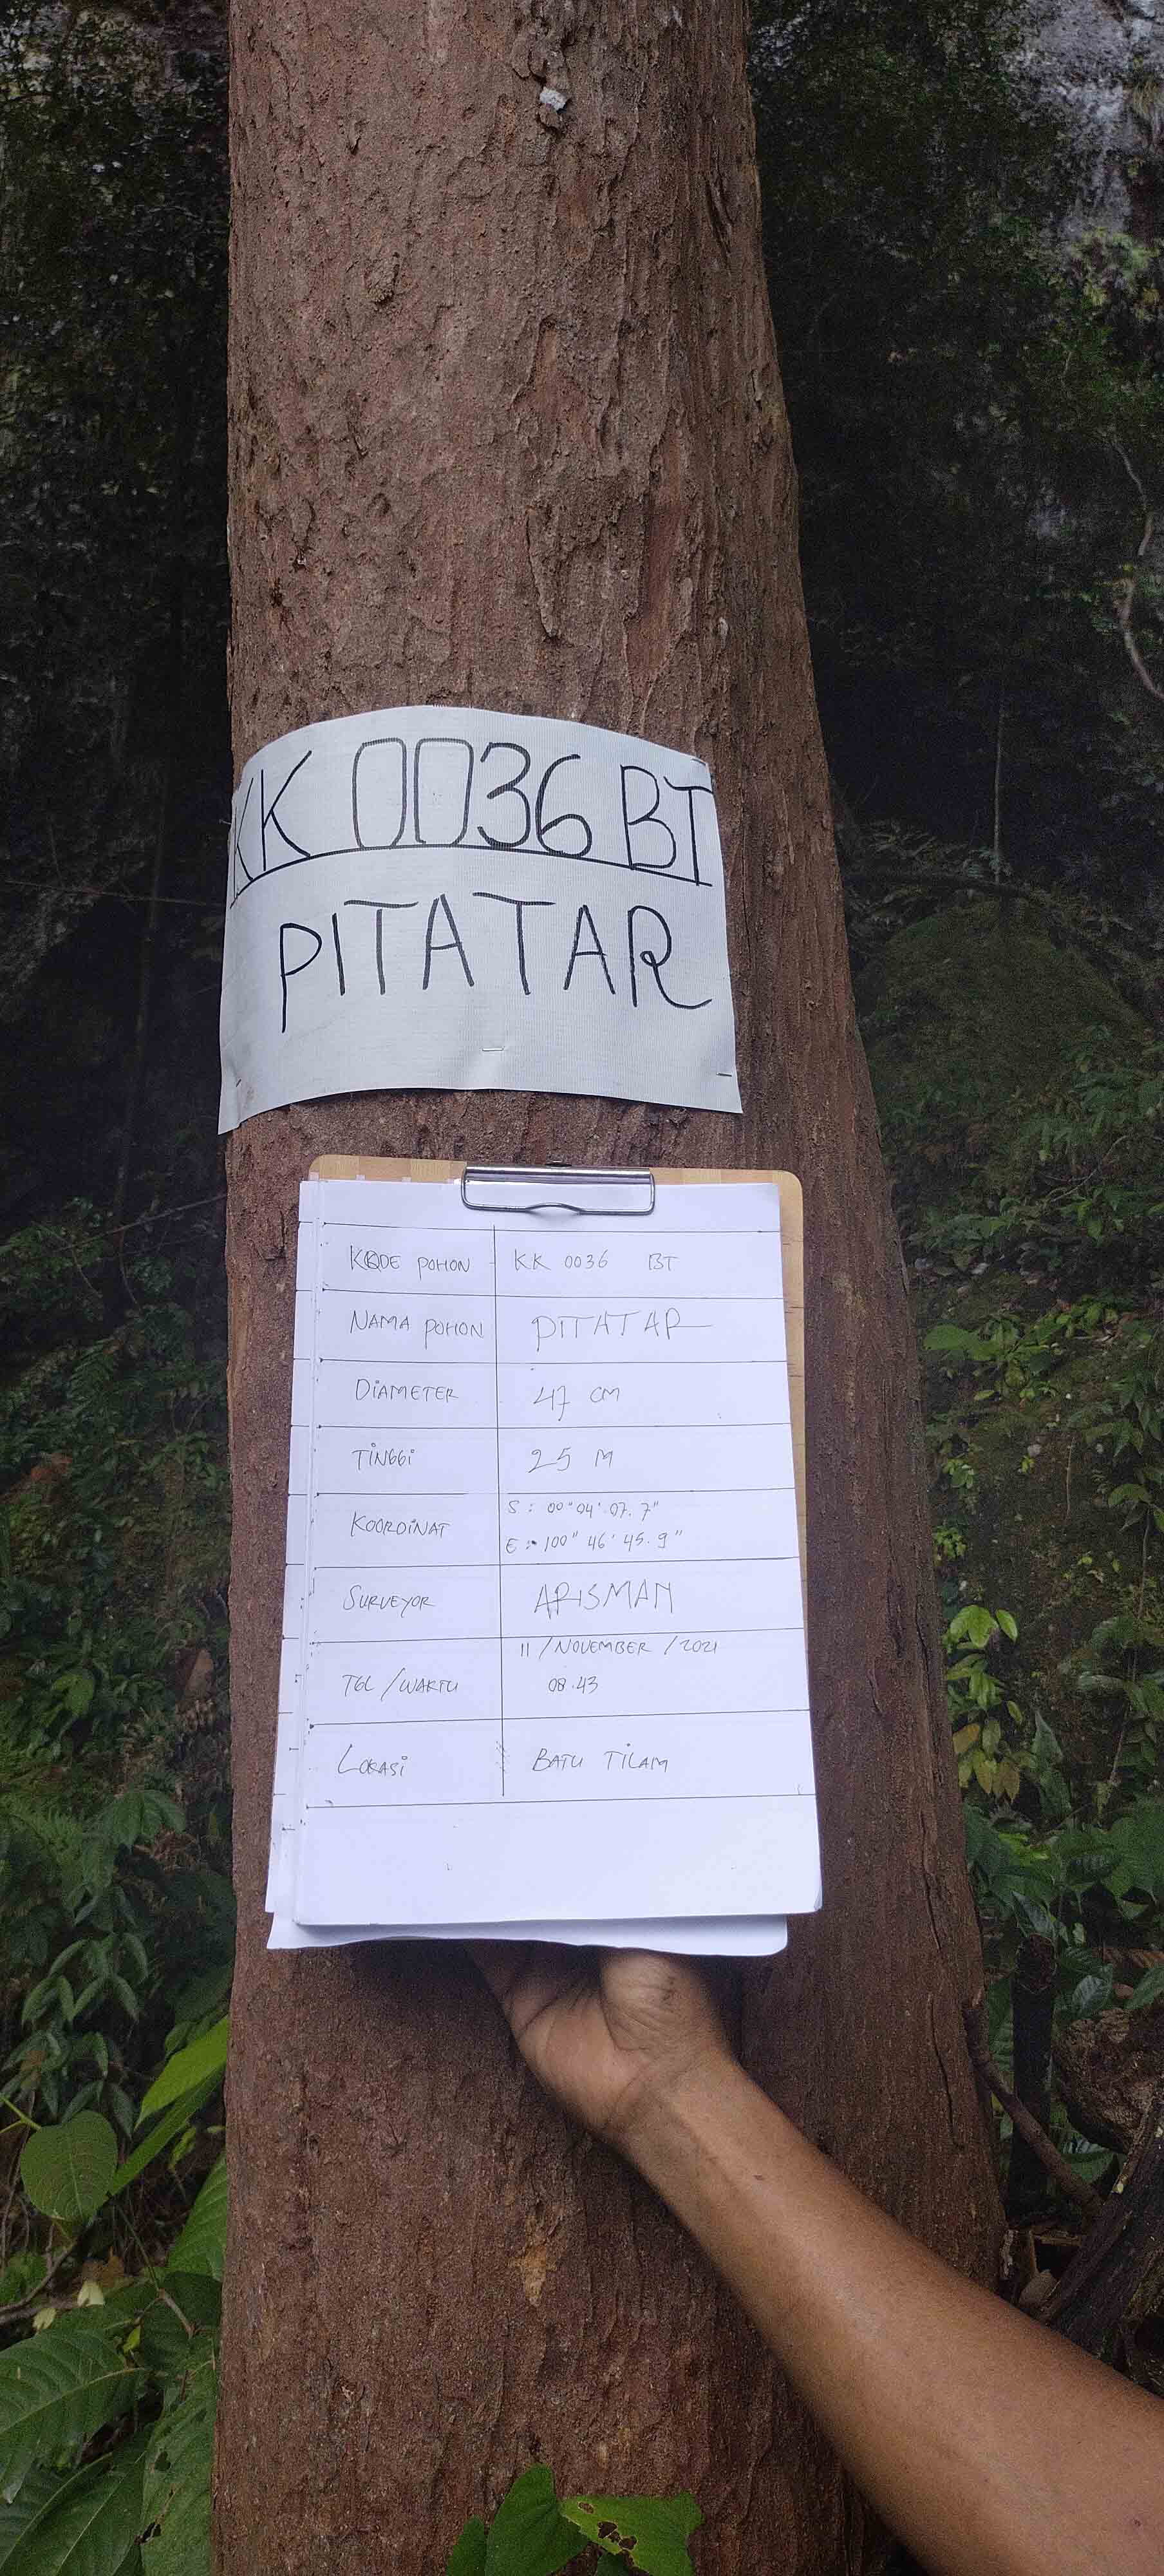 KK 0036 BT
PITATAR
KODE POHON KK 0036 BT
NAMA POHON PITATAR
DIAMETER 47 CM
TINGGI 25 M
KOORDINAT S : 00" 04' 07. 7"
E : 100" 46' 45. 9"
SURVEYOR ARISMAN
TGL / WAKTU 11 / NOVEMBER / 2021
08.43
LOKASI BATU TILAM